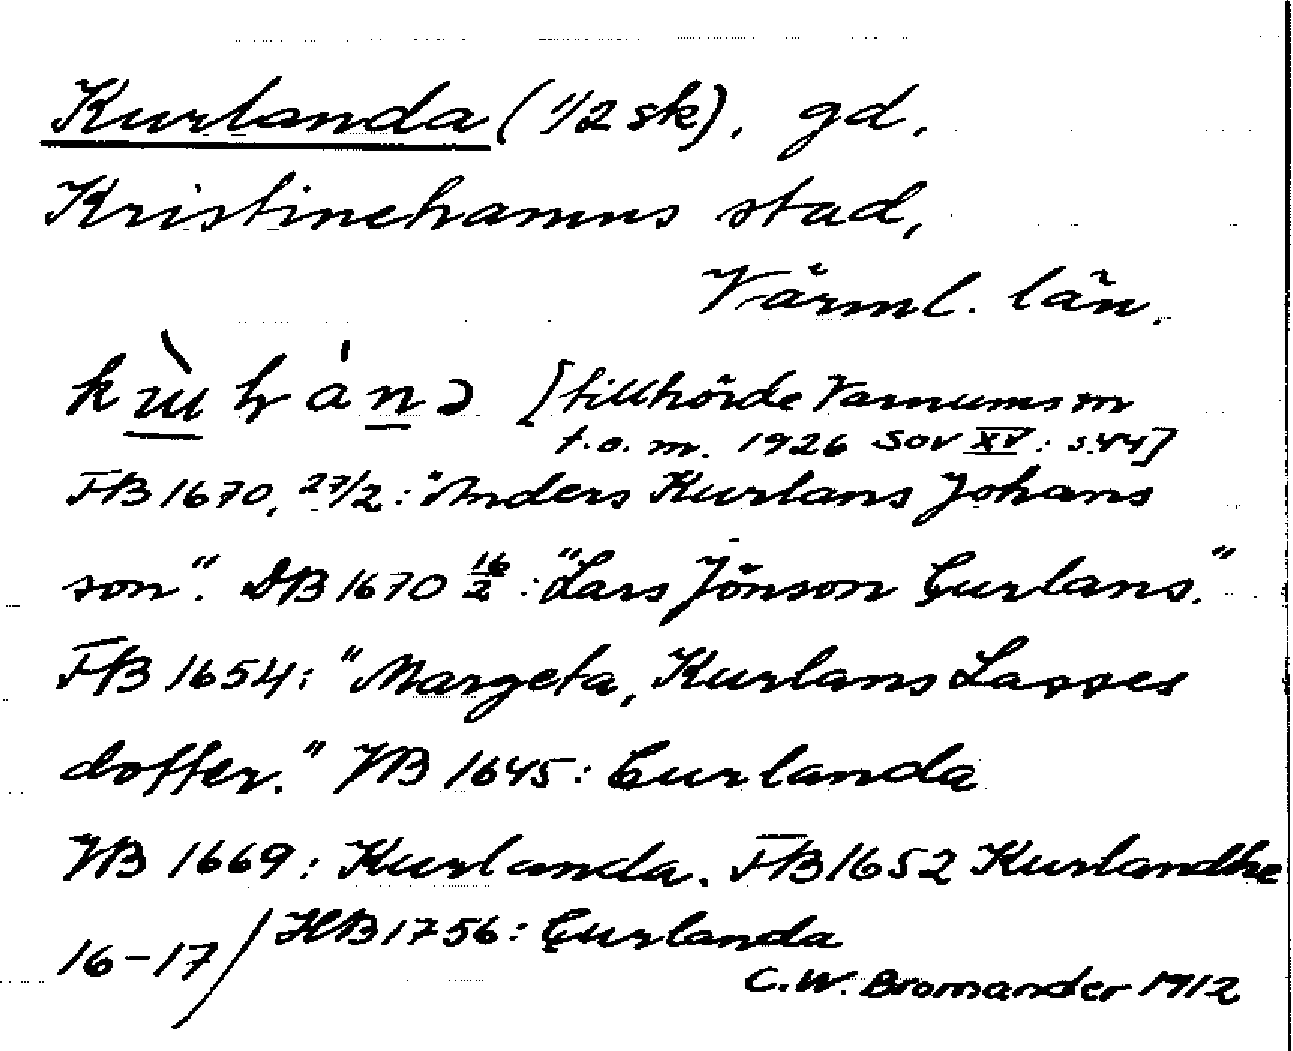 Kurlanda (1/2 sk), gd,
Kristinehamns stad,
Värml. län.
[tillhörde Varnums sn
t.o.m. 1926 SOV XV: s.44]
FB 1670, 27/2: "Anders Kurlans Johans
son". DB 1670 16/2: "Lars Jönson Çurlans."
FB 1654: "Margeta, Kurlans Lasses
dotter." JB 1645: Curlanda
JB 1669: Kurlanda. FB 1652 Kurlandhe
16-17 / HB 1756: Çurlanda
C.W. Bromander 1912